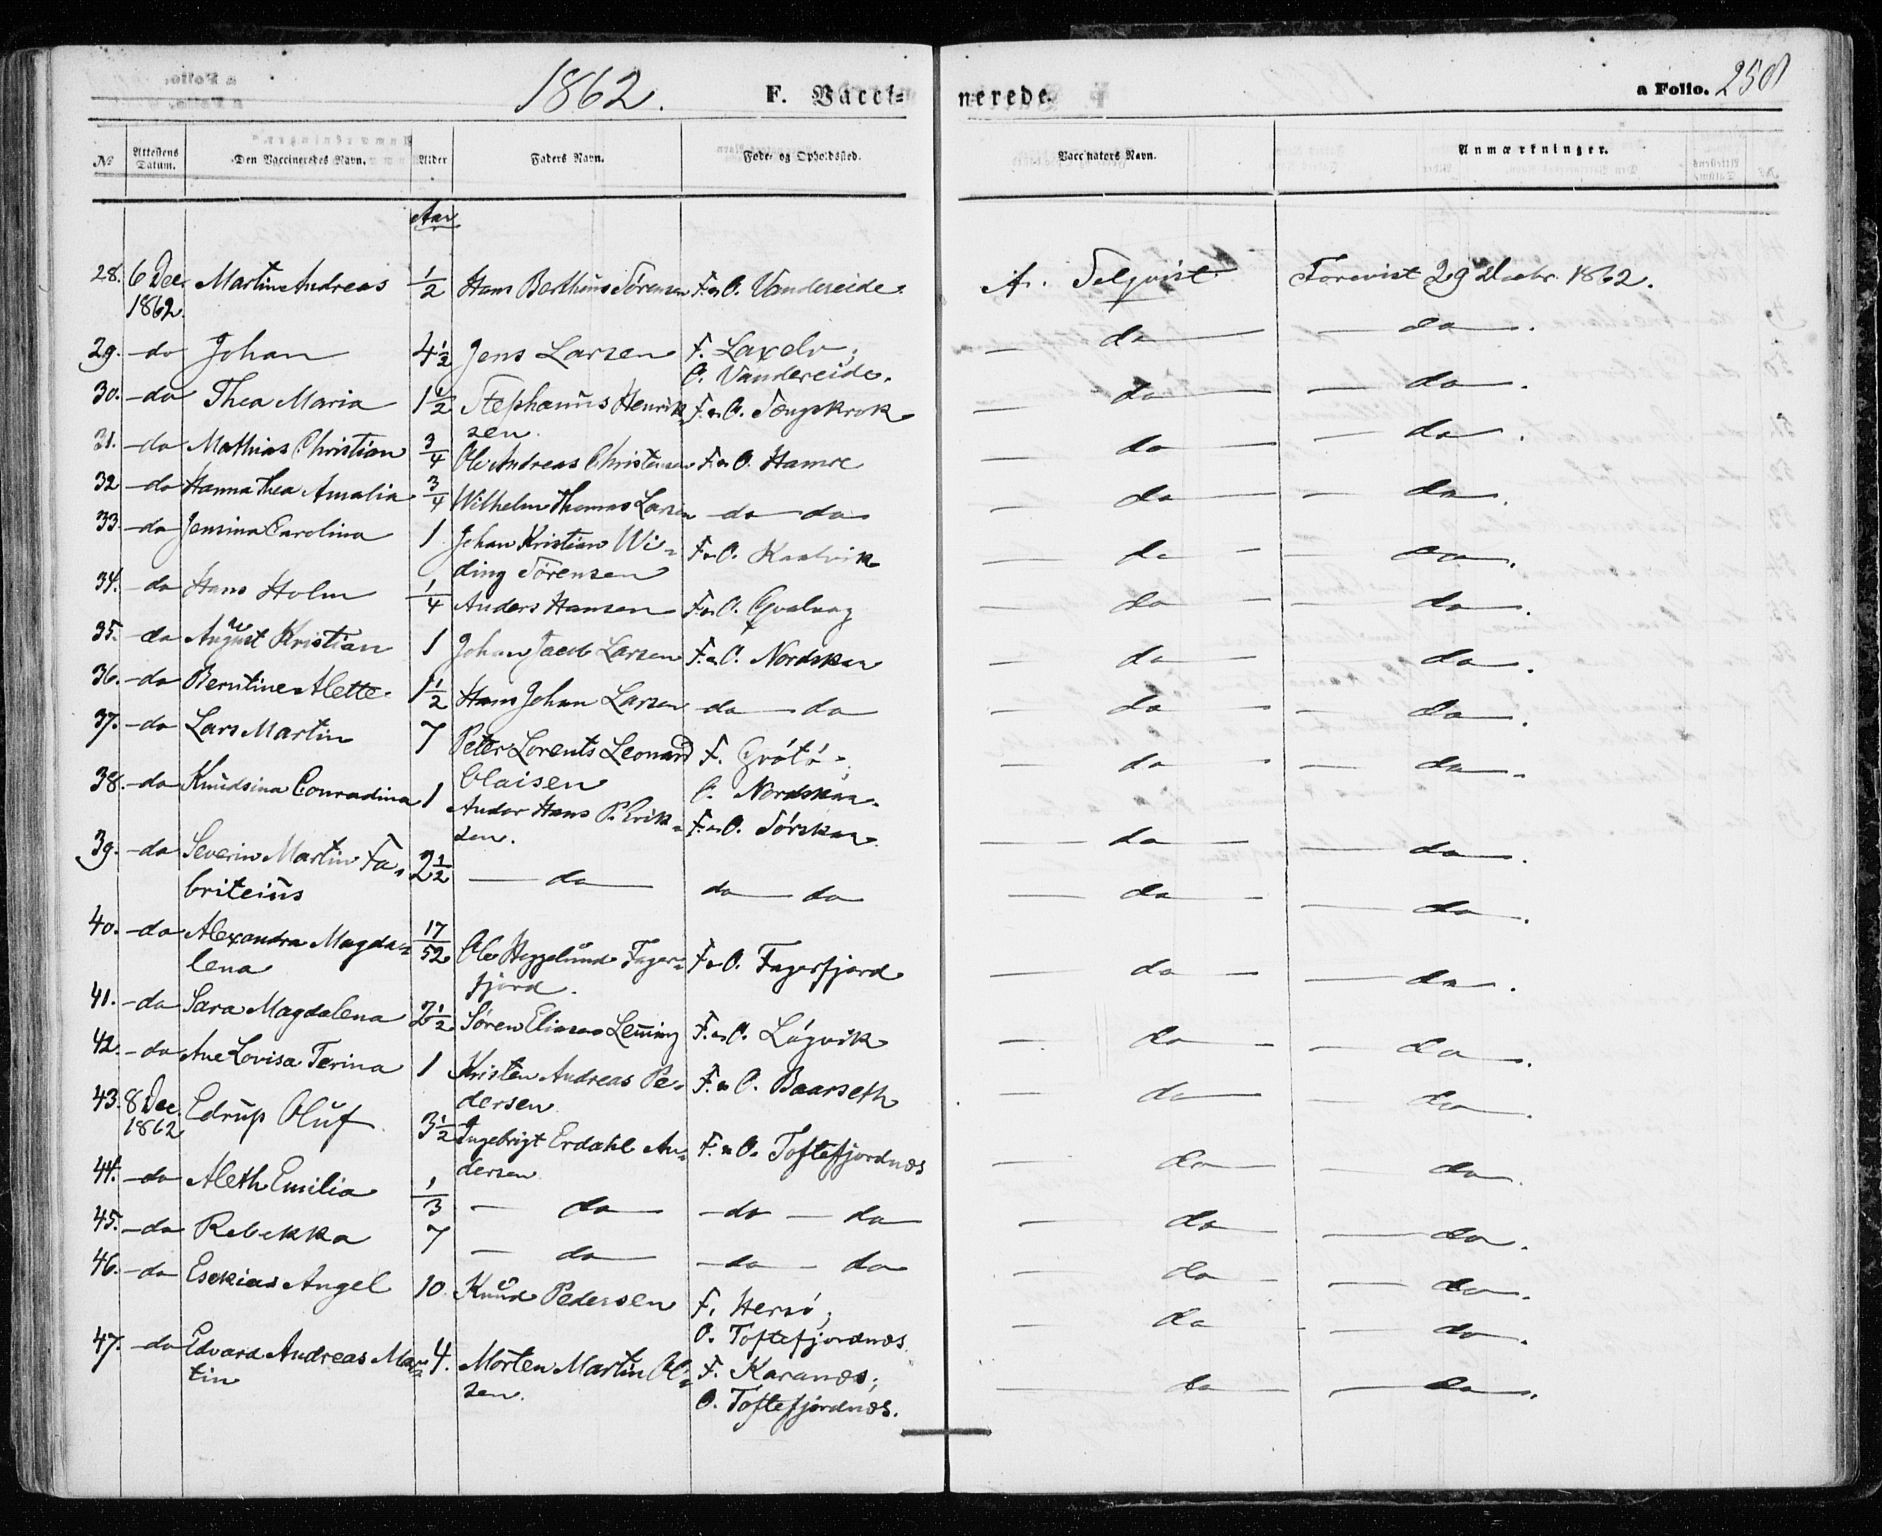 1862. F. Vacci- nerede. a Folio. 250
No Attestens Datum. Den Vaccineredes Navn. Alder Faders Navn. Føde- og Opholdssted. Vaccinators Navn. Anmærkninger.
Aar
28. 6 Dec. Martin Andreas 1/2 Hans Bertheus Sörensen F. o. O. Vandereide A. Selqvist Forevist 29 Decbr. 1862.
1862.
29. - do Johan 4 1/2 Jens Larsen F. Laxelv; — do — — do —.
O. Vandereide.
30. - do Thea Maria 1 1/2 Stephanus Henrik- F. o. O. Tengskrok — do — — do —.
sen.
31. - do Mathias Christian 3/4 Ole Andreas Christensen F. o. O. Hamre — do — — do —.
32 - do Hanna Thea Amalia 3/4 Wilhelm Thomas Larsen — do — do — do — — do —.
33. - do Jensina Carolina 1 Johan Kristian Wi- F. o. O. Kaalvik — do — — do —.
ding Sörensen
34. - do Hans Holm 1/4 Anders Hansen F. o. O. Qvalvaag — do — — do —.
35. - do August Kristian 1 Johan Jacob Larsen F. o. O. Nordskar — do — — do —.
36. - do Berntine Alette 1 1/2 Hans Johan Larsen — do — do — do — — do —.
37. - do Lars Martin 7 Peter Lorents Leonard F. Grötö; — do — — do —
Olaisen O. Nordskar.
38. - do Knudsina Conradina 1 Andor Hans P. Erik- F. o. O. Sörskar — do — — do —.
sen.
39. - do Severin Martin Fa- 2 1/2 — do — do — do — do — — do —.
briteius
40. - do Alexandra Magda- 17/52 Ole Heggelund Fager- F. o. O. Fagerfjord — do — — do —.
lena fjord.
41. - do Sara Magdalena 2 1/2 Sören Eliasen Lenning F. o. O. Lögvik — do — — do —.
42. - do Ane Lovisa Terina 1 Kristen Andreas Pe- F. o. O. Baarseth — do — — do —.
dersen
43. 8 Dec. Edrup Oluf 3 1/2 Ingebrigt Erdahl An- F. o. O. Toftefjordnæs — do — — do —.
1862 dersen
44. - do Aleth Emilia 1/3 — do — — do — do — do — — do —.
45. - do Rebekka 7 — do — — do — do — do — — do —.
46. - do Esekias Angel 10 Knud Pedersen F. Hersö; — do — — do —.
O. Toftefjordnæs
47. - do Edvard Andreas Mar- 4. Morten Martin Ol- F. Karanæs; — do — — do —.
tin sen. O. Toftefjordnæs.